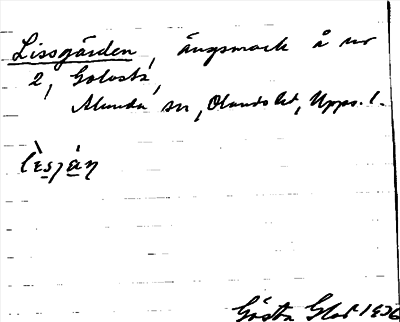 Lissgärden, ängsmark å nr
2, Golvsta,
Alunda sn, Olands hd, Upps. l.
Gösta Glas 1936